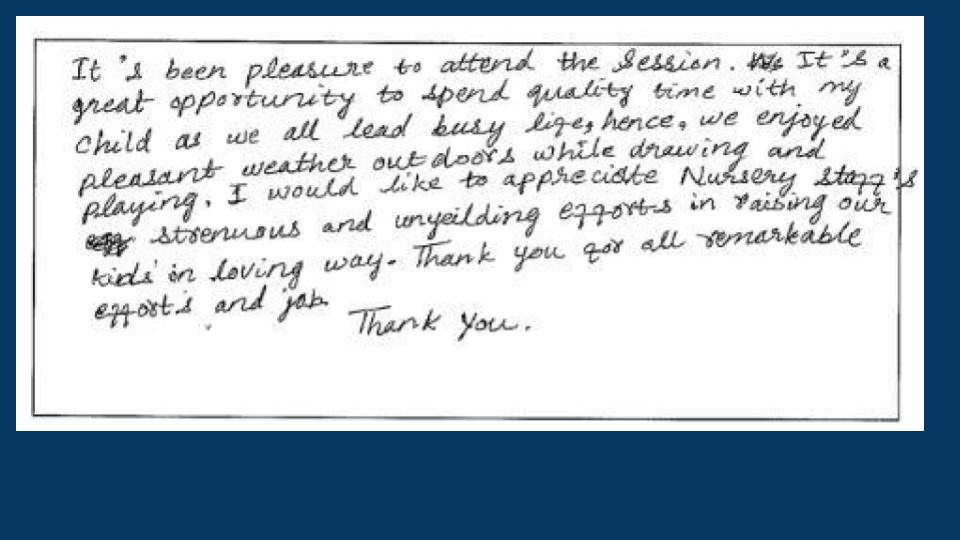 It's been pleasure to attend the Session. It's a
great opportunity to spend quality time with my
child as we all lead busy life, hence, we enjoyed
pleasant weather outdoors while drawing and
playing. I would like to appreciate Nursery staff's
strenuous and unyeilding efforts in raising our
kids' in loving way. Thank you for all remarkable
effort's and job.
Thank you.